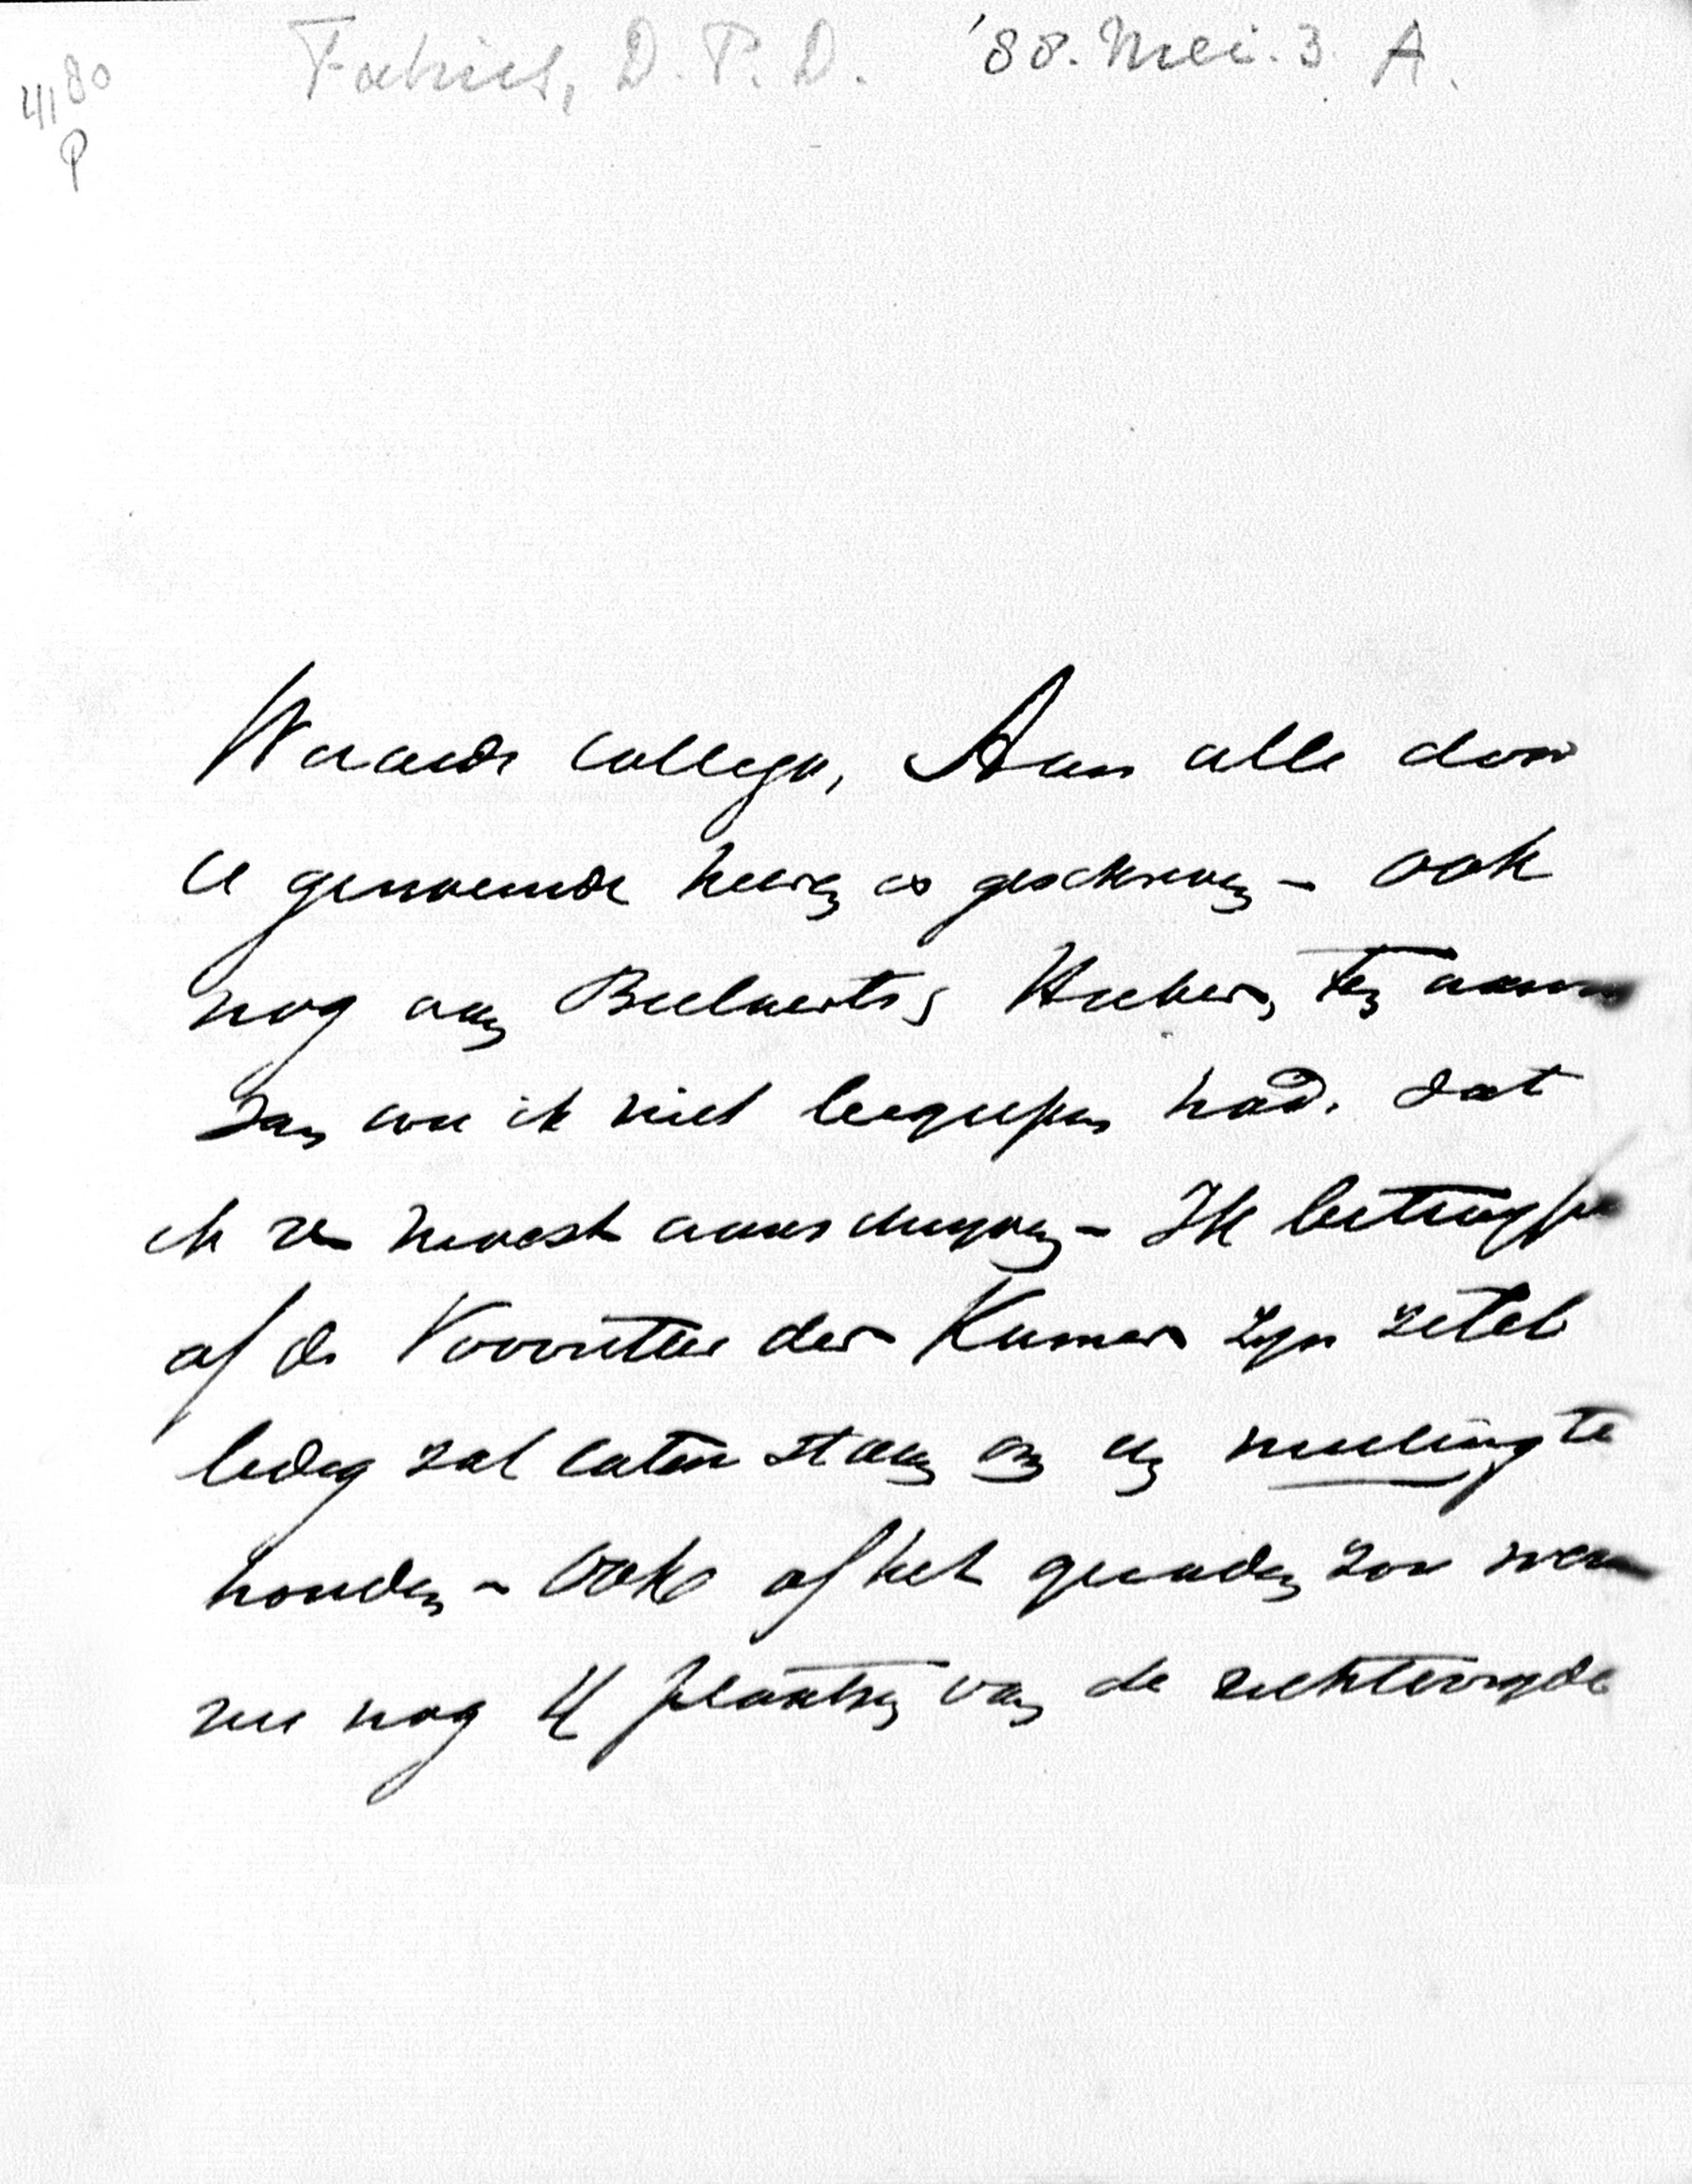 Fabius, D.P.D. '88. Mei. 3. A.
4180
P
Waarde Collega, Aan alle door
U genoemde heeren is geschreven – ook
nog aan Beelaerts & Huber, ten aanzien
van wie ik niet begrepen had, dat
ik ze moest aanschrijven – Ik betwijfel
of de Voorzitter der Kamer zijn zetel
ledig zal laten staan om een meeting te
houden – Ook of het geraden zou wezen
nu nog 4 plaatsen van de rechterzijde